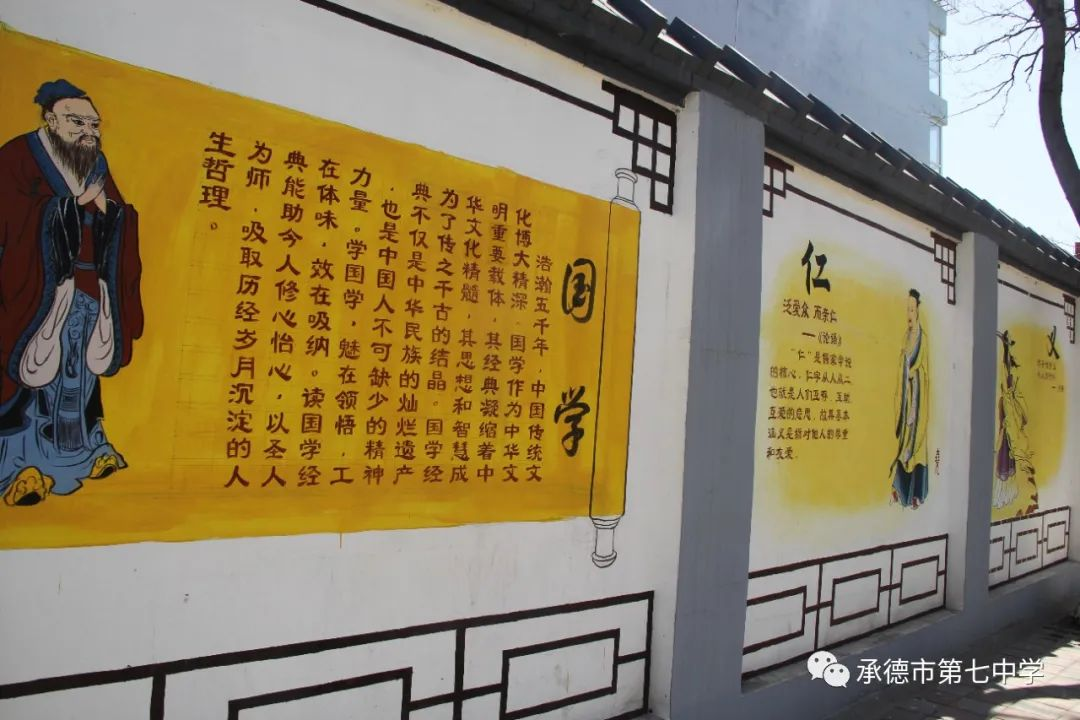 国学
浩瀚五千年，中国传统文
化博大精深，国学作为中华文
明重要载体，其经典凝缩着中
华文化精髓，其思想和智慧成
为了传之千古的结晶。国学经
典不仅是中华民族的灿烂遗产
，也是中国人不可缺少的精神
力量。学国学，魅在领悟，工
在体味，效在吸纳。读国学经
典能助今人修心怡心，以圣人
为师，吸取历经岁月沉淀的人
生哲理。
仁
泛爱众 而亲仁
——《论语》
“仁”是儒家学说
的核心，仁字从人从二
也就是人们互存、互助
互爱的意思，故其基本
涵义是指对他人的尊重
和友爱。
义
承德市第七中学